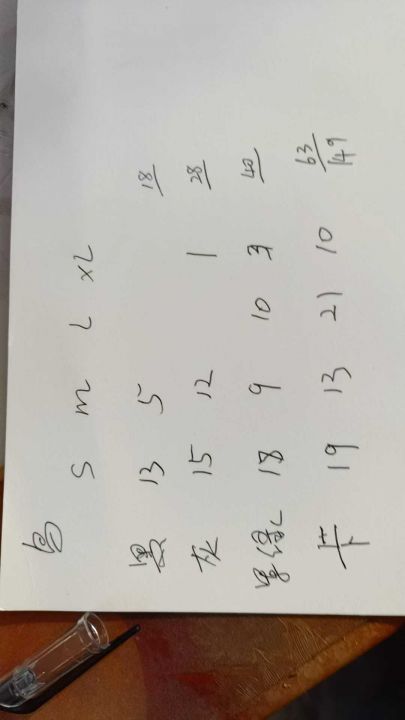 色
S M L XL
黑 13 5 18
灰 15 12 1 28
墨绿 18 9 10 3 40
卡 19 13 21 10 63
149